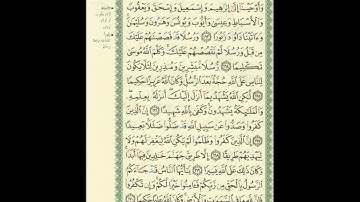 وَأَوْحَيْنَا إِلَىٰ إِبْرَٰهِيمَ وَإِسْمَٰعِيلَ وَإِسْحَٰقَ وَيَعْقُوبَ
وَٱلْأَسْبَاطِ وَعِيسَىٰ وَأَيُّوبَ وَيُونُسَ وَهَٰرُونَ وَسُلَيْمَٰنَ
وَءَاتَيْنَا دَاوُۥدَ زَبُورًا ١٦٣ وَرُسُلًا قَدْ قَصَصْنَٰهُمْ عَلَيْكَ
مِن قَبْلُ وَرُسُلًا لَّمْ نَقْصُصْهُمْ عَلَيْكَ وَكَلَّمَ ٱللَّهُ مُوسَىٰ
تَكْلِيمًا ١٦٤ رُّسُلًا مُّبَشِّرِينَ وَمُنذِرِينَ لِئَلَّا يَكُونَ
لِلنَّاسِ عَلَى ٱللَّهِ حُجَّةٌۢ بَعْدَ ٱلرُّسُلِ وَكَانَ ٱللَّهُ عَزِيزًا حَكِيمًا
١٦٥ لَّٰكِنِ ٱللَّهُ يَشْهَدُ بِمَآ أَنزَلَ إِلَيْكَ أَنزَلَهُۥ بِعِلْمِهِۦ
وَٱلْمَلَٰٓئِكَةُ يَشْهَدُونَ وَكَفَىٰ بِٱللَّهِ شَهِيدًا ١٦٦ إِنَّ ٱلَّذِينَ
كَفَرُوا۟ وَصَدُّوا۟ عَن سَبِيلِ ٱللَّهِ قَدْ ضَلُّوا۟ ضَلَٰلًۢا بَعِيدًا
١٦٧ إِنَّ ٱلَّذِينَ كَفَرُوا۟ وَظَلَمُوا۟ لَمْ يَكُنِ ٱللَّهُ لِيَغْفِرَ لَهُمْ وَلَا
لِيَهْدِيَهُمْ طَرِيقًا ١٦٨ إِلَّا طَرِيقَ جَهَنَّمَ خَٰلِدِينَ فِيهَآ أَبَدًا
وَكَانَ ذَٰلِكَ عَلَى ٱللَّهِ يَسِيرًا ١٦٩ يَٰٓأَيُّهَا ٱلنَّاسُ قَدْ جَآءَكُمُ
ٱلرَّسُولُ بِٱلْحَقِّ مِن رَّبِّكُمْ فَـَٔامِنُوا۟ خَيْرًا لَّكُمْ وَإِن تَكْفُرُوا۟
فَإِنَّ لِلَّهِ مَا فِى ٱلسَّمَٰوَٰتِ وَٱلْأَرْضِ وَكَانَ ٱللَّهُ عَلِيمًا حَكِيمًا